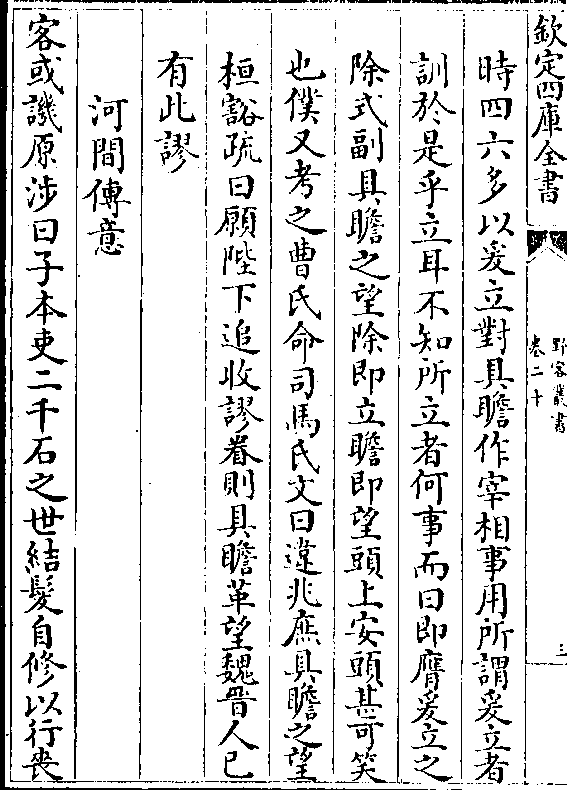 欽定四庫全書
野客叢書
卷二十
三
時四六多以爰立對具瞻作宰相事用所謂爰立者
訓於是乎立耳不知所立者何事而曰即膺爰立之
除式副具瞻之望除即立瞻即望頭上安頭甚可笑
也僕又考之曹氏命司馬氏文曰違兆庶具瞻之望
桓豁疏曰願陛下追收謬眷則具瞻革望魏晉人已
有此謬
河間傳意
客或譏原涉曰子本吏二千石之世結髮自修以行喪